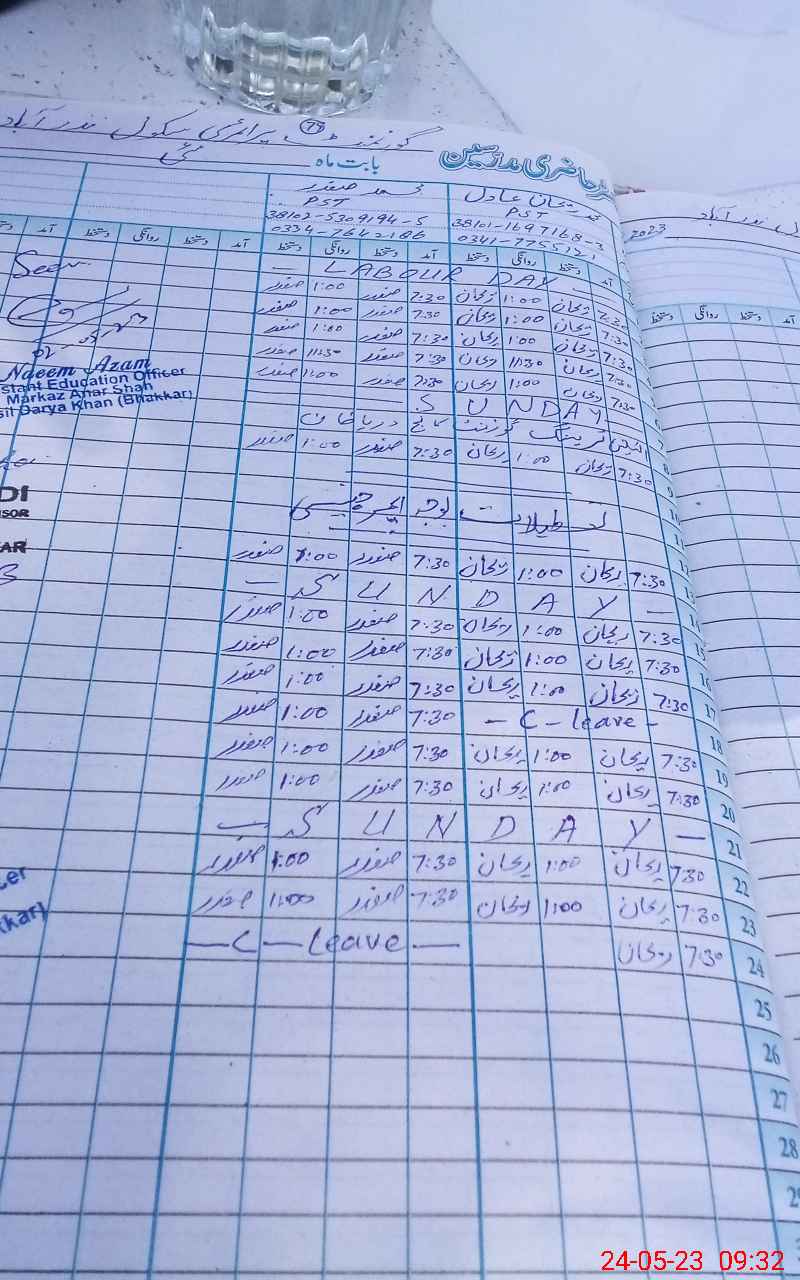 گورنمنٹ پرائمری سکول نذر آباد
74
رجسٹر حاضری مدرسین
بابت ماہ مئی
2023
محمد ریحان عادل
PST
38101-1697168-3
0341-7755121
محمد صفدر
PST
38102-5309194-5
0334-7642186
آمد دستخط روانگی دستخط آمد دستخط روانگی دستخط آمد دستخط روانگی دستخط
— LABOUR DAY —
7:30 ریحان 1:00 ریحان 7:30 صفدر 1:00 صفدر
7:30 ریحان 1:00 ریحان 7:30 صفدر 1:00 صفدر
7:30 ریحان 1:00 ریحان 7:30 صفدر 1:00 صفدر
7:30 ریحان 11:30 ریحان 7:30 صفدر 11:30 صفدر
7:30 ریحان 1:00 ریحان 7:30 صفدر 1:00 صفدر
SUNDAY
ٹریننگ گورنمنٹ کالج دریا خان
7:30 ریحان 1:00 ریحان 7:30 صفدر 1:00 صفدر
تعطیلات بوجہ ایمرجنسی
7:30 ریحان 1:00 ریحان 7:30 صفدر 1:00 صفدر
SUNDAY —
15 7:30 ریحان 1:00 ریحان 7:30 صفدر 1:00 صفدر
16 7:30 ریحان 1:00 ریحان 7:30 صفدر 1:00 صفدر
17 7:30 ریحان 1:00 ریحان 7:30 صفدر 1:00 صفدر
18 — C — leave — 7:30 صفدر 1:00 صفدر
19 7:30 ریحان 1:00 ریحان 7:30 صفدر 1:00 صفدر
20 7:30 ریحان 1:00 ریحان 7:30 صفدر 1:00 صفدر
21 SUNDAY —
22 7:30 ریحان 1:00 ریحان 7:30 صفدر 1:00 صفدر
23 7:30 ریحان 1:00 ریحان 7:30 صفدر 1:00 صفدر
24 7:30 ریحان — C — leave —
25
26
27
28
Seen
Naeem Azam
stant Education Officer
Markaz Ahar Shah
sil Darya Khan (Bhakkar)
DI
SOR
AR
cer
kkar)
24-05-23 09:32